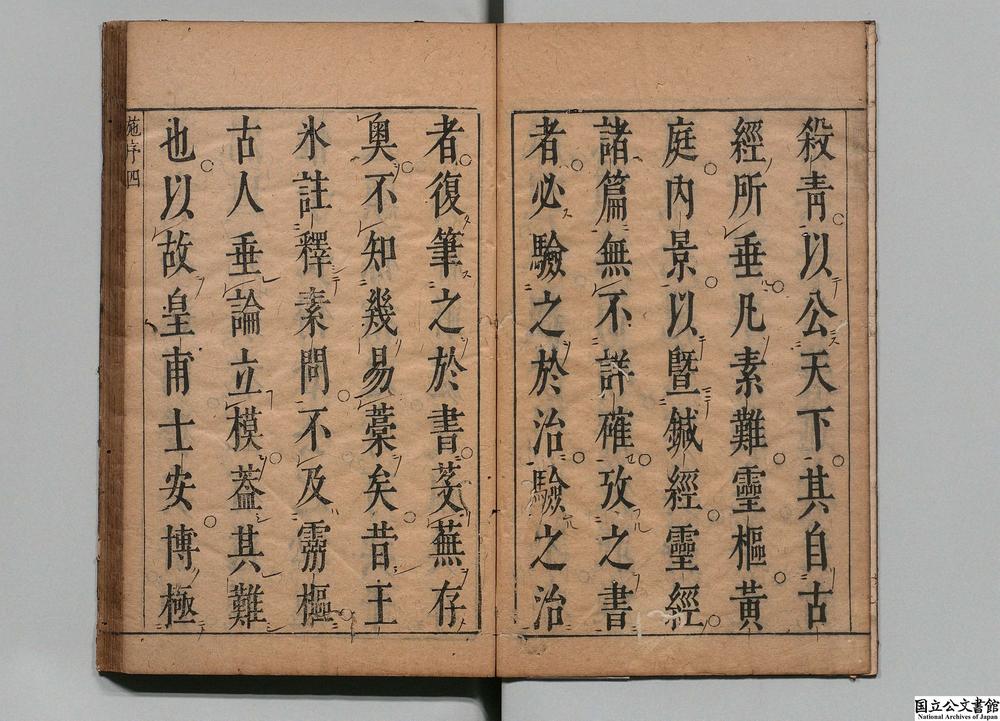 殺青以公天下其自古
經所垂凡素難靈樞黃
庭內景以曁鍼經靈經
諸篇無不詳確攷之書
者必驗之於治驗之治
者復筆之於書芟蕪存
奧不知幾易藁矣昔王
氷註釋素問不及靈樞
古人垂論立模蓋其難
也以故皇甫士安博極
施序 四
国立公文書館
National Archives of Japan